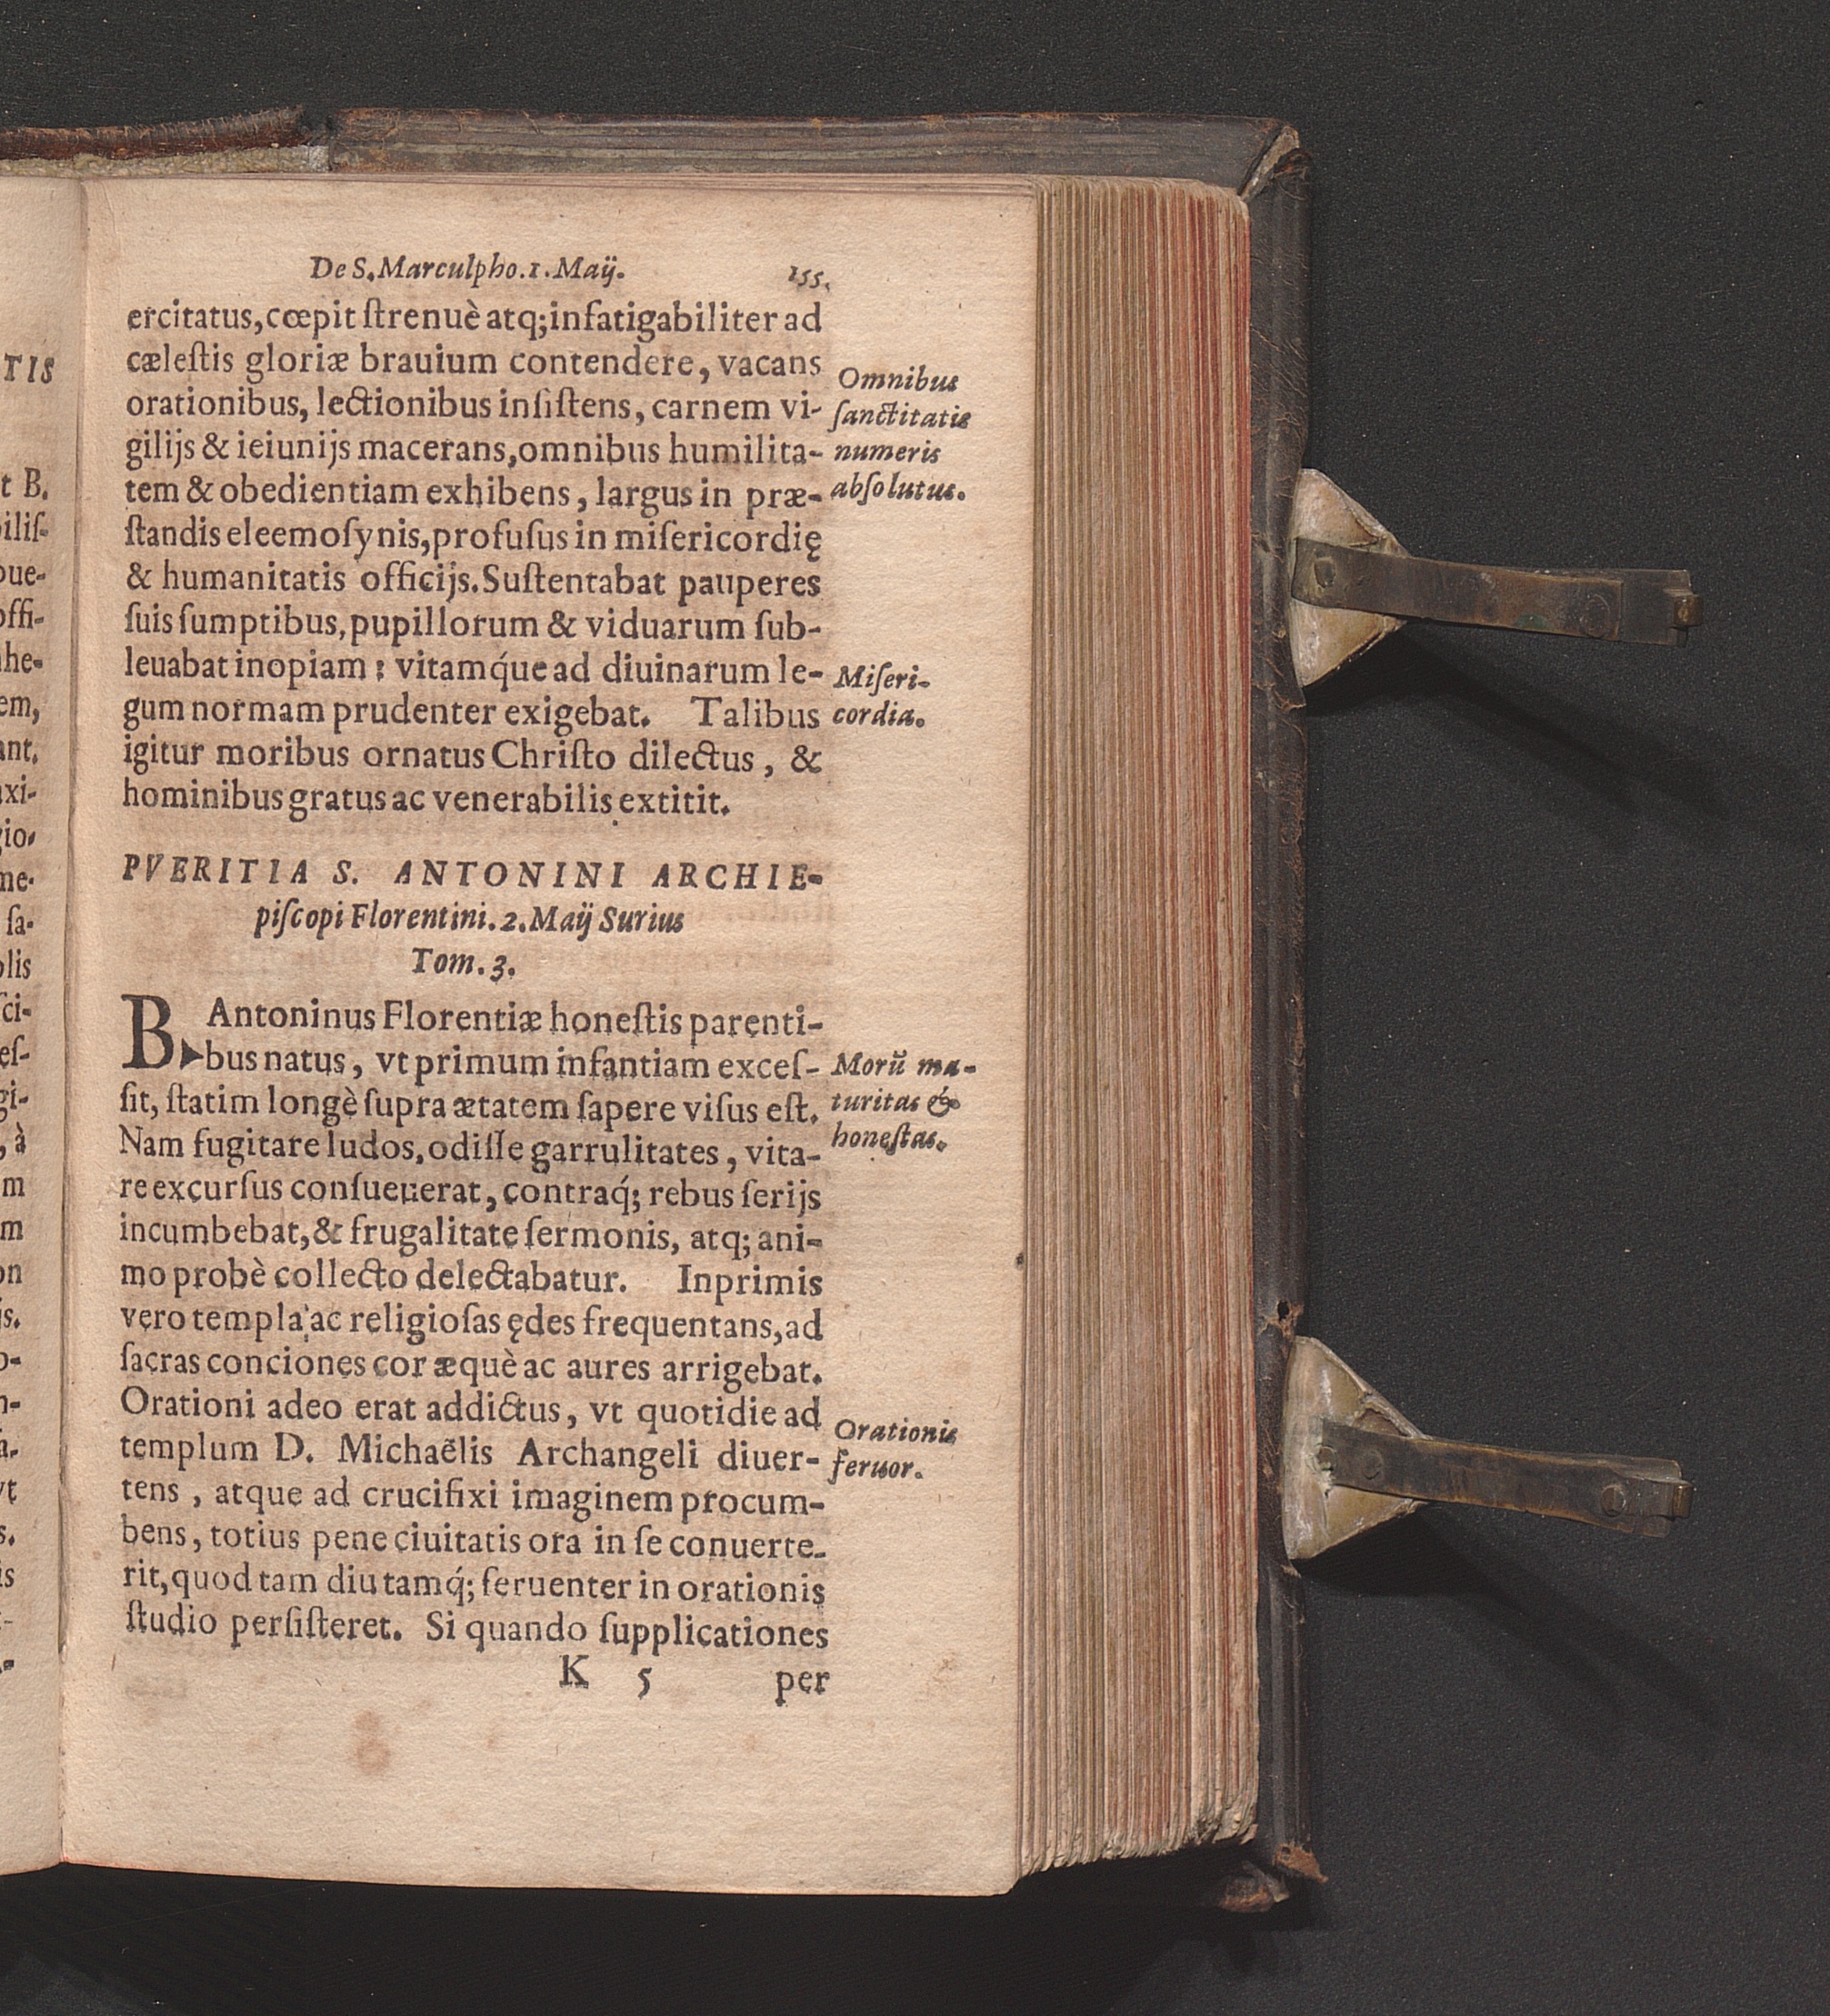 De S. Marculpho. 1. Maij. 155.
ercitatus, cœpit ſtrenuè atq; infatigabiliter ad
cæleſtis gloriæ brauium contendere, vacans
orationibus, lectionibus inſiſtens, carnem vi-
gilijs & ieiunijs macerans, omnibus humilita-
tem & obedientiam exhibens, largus in præ-
ſtandis eleemoſynis, profuſus in miſericordię
& humanitatis officijs. Suſtentabat pauperes
ſuis ſumptibus, pupillorum & viduarum ſub-
leuabat inopiam: vitamq́ue ad diuinarum le-
gum normam prudenter exigebat. Talibus
igitur moribus ornatus Chriſto dilectus, &
hominibus gratus ac venerabilis extitit.
Omnibus
ſanctitatis
numeris
abſolutus.
Miſeri-
cordia.
PVERITIA S. ANTONINI ARCHIE-
piſcopi Florentini. 2. Maij Surius
Tom. 3.
B Antoninus Florentiæ honeſtis parenti-
bus natus, vt primum infantiam exceſ-
ſit, ſtatim longè ſupra ætatem ſapere viſus eſt.
Nam fugitare ludos, odiſſe garrulitates, vita-
re excurſus conſueuerat, contraq́; rebus ſerijs
incumbebat, & frugalitate ſermonis, atq; ani-
mo probè collecto delectabatur. Inprimis
vero templa ac religioſas ędes frequentans, ad
ſacras conciones cor æquè ac aures arrigebat.
Orationi adeo erat addictus, vt quotidie ad
templum D. Michaëlis Archangeli diuer-
tens, atque ad crucifixi imaginem procum-
bens, totius pene ciuitatis ora in ſe conuerte-
rit, quod tam diu tamq́; feruenter in orationis
ſtudio perſiſteret. Si quando ſupplicationes
Morũ ma-
turitas &
honeſtas.
Orationis
feruor.
K 5 per